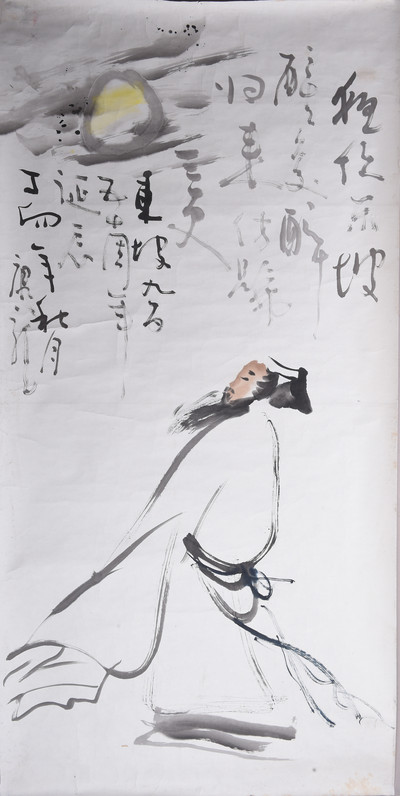 夜饮东坡
醒复醉
归来仿佛
三更
東坡九百
五十周年
诞辰
丁卯年秋月